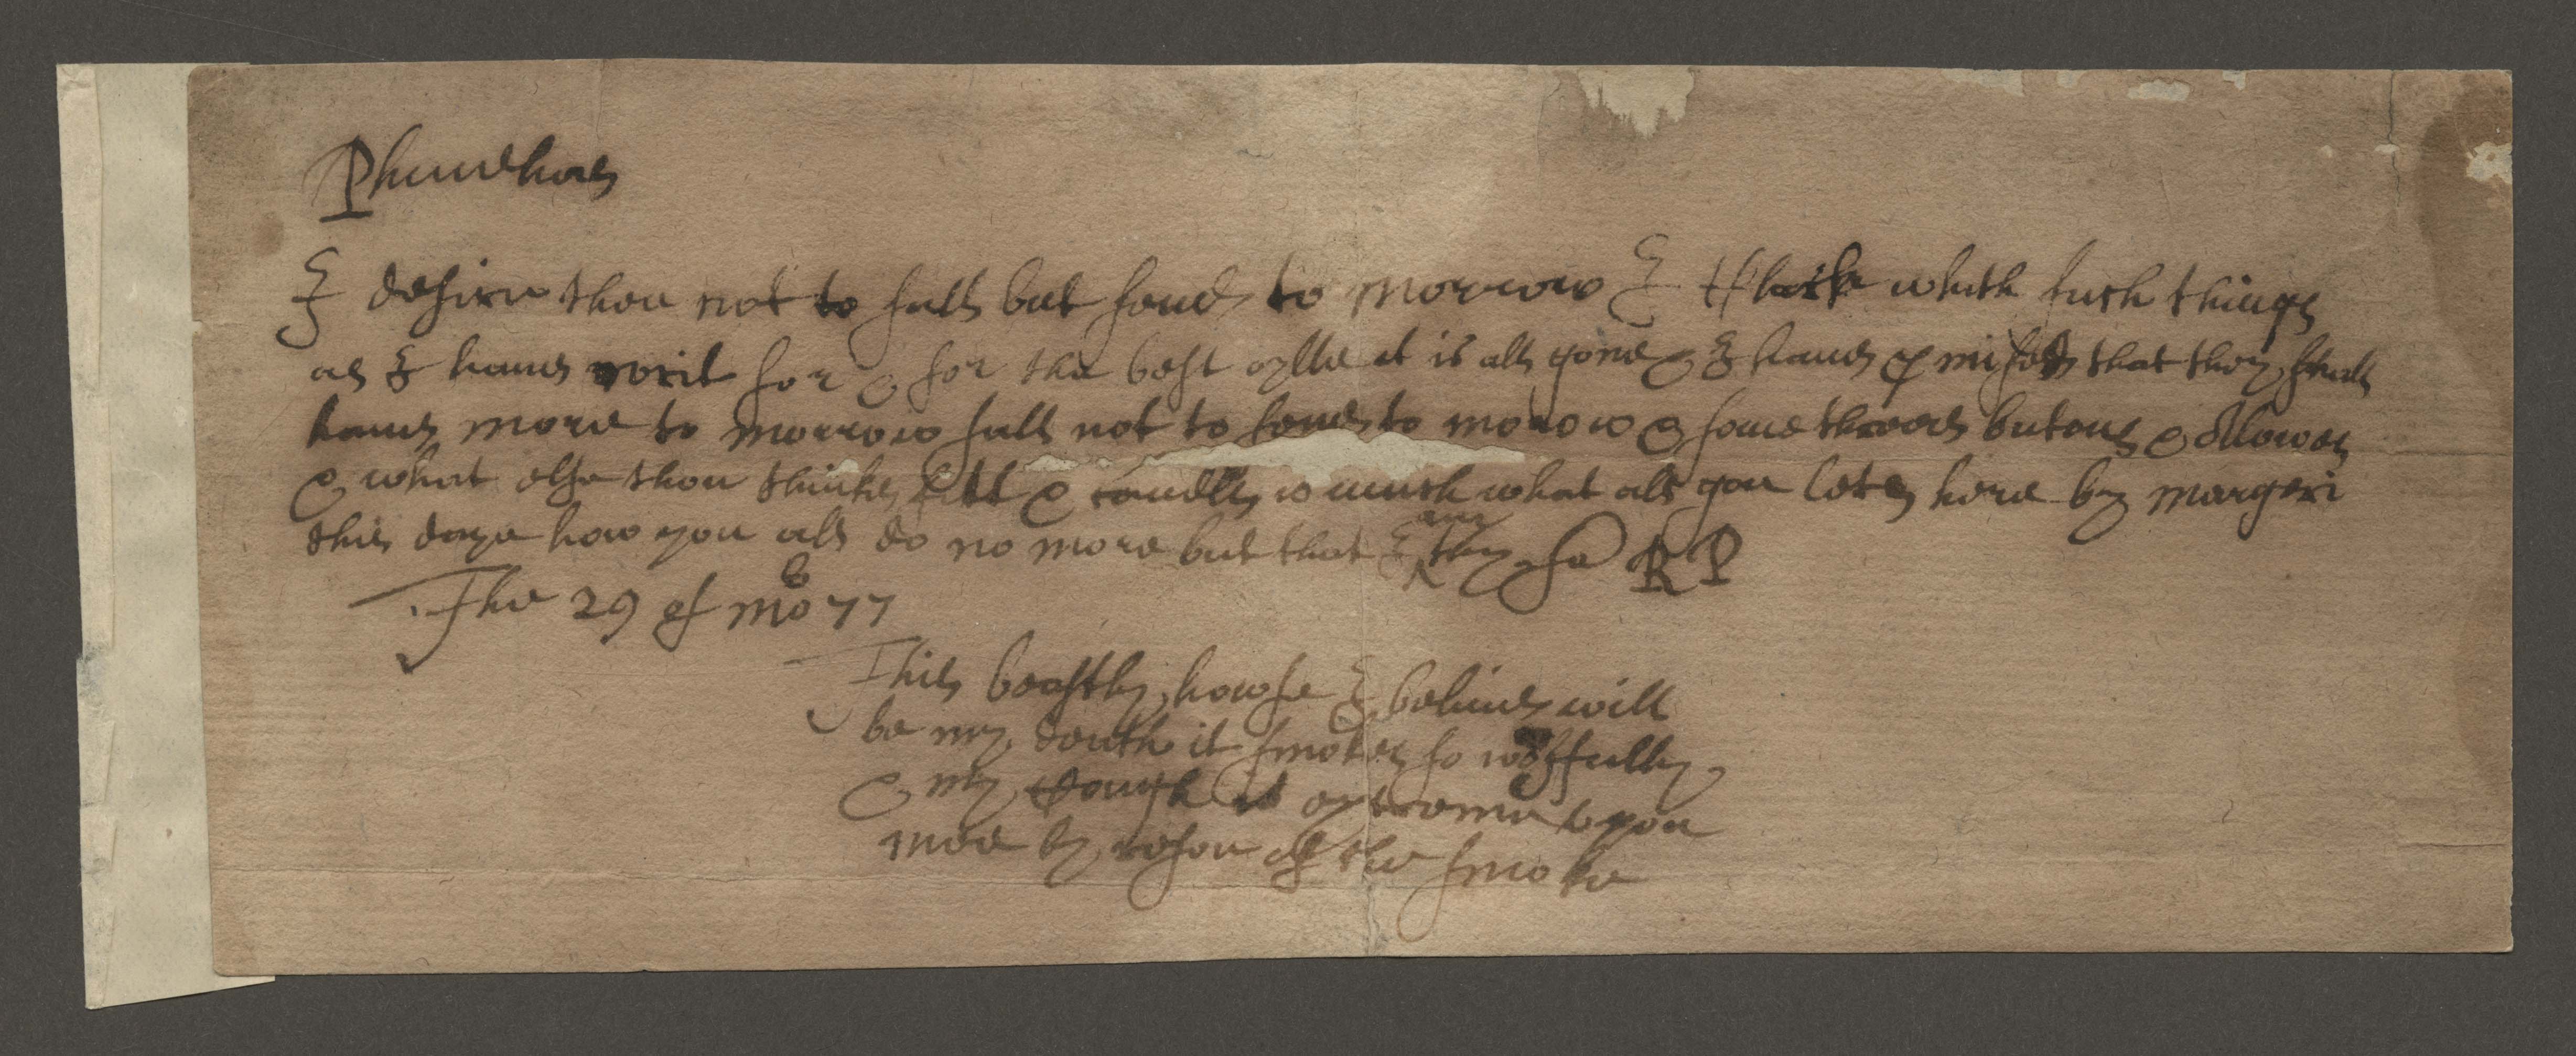 Phinehas
I desire thou not to fall but send to morrow I thinke which such things
as I haue writ for & for the best oylle it is all gone & I haue p mised that they shall
haue more to morrow fall not to send to morow & some threed butons &
& what else thou thinkes fitt & candles w much what all you lete here by margeri
this daye how you all do no more but that I am thy so R P
The 29 of 6 mo 77
This beastly howse I beliue will
be my death it smokes so woffully
& my cough is extreme upon
mee by reson of the smoke